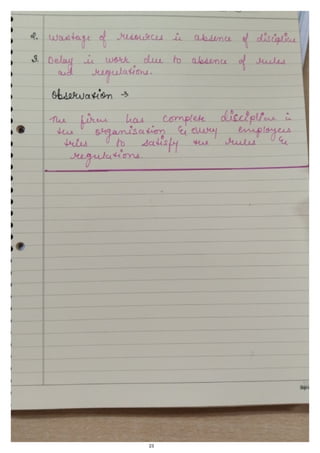 2. Wastage of resources in absence of discipline
3. Delay in work due to absence of rules
and regulations.
Observation →
The firm has complete discipline in
the organisation & every employees
tries to satisfy the rules &
regulations.
23